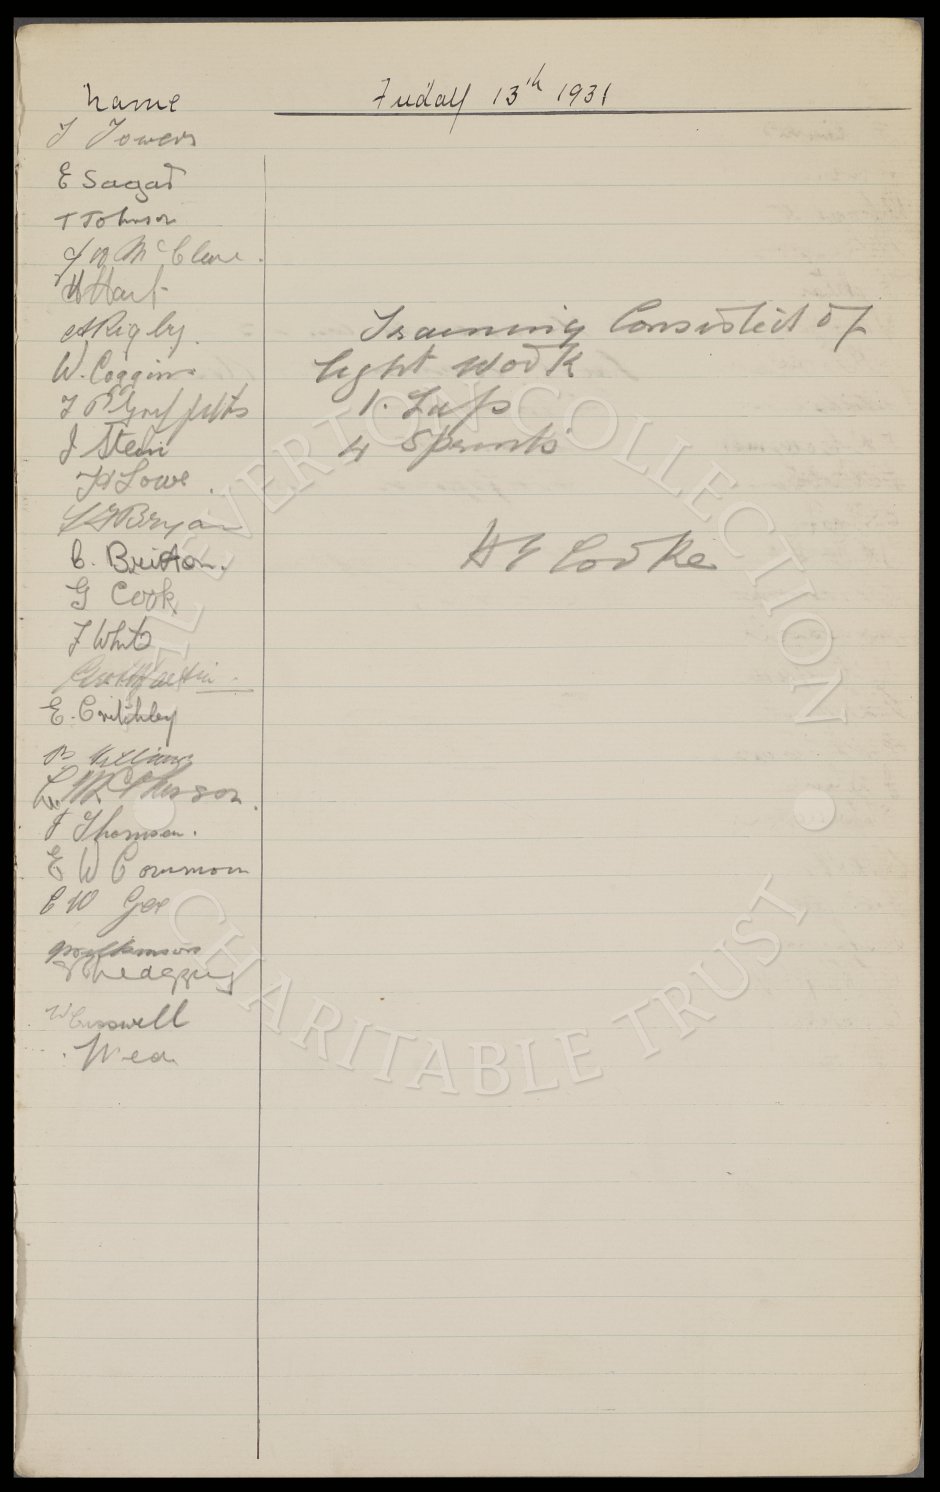 Name
Friday 13th 1931
T Towers
E Sagar
T Johnson
J W McClure.
H Hart
A Rigby.
W. Coggins
T P Griffiths
J Stein
H Lowe.
L F Bryan
C. Britton.
G Cook
T White
Geo H Martin
E. Critchley
B Williams
L. McPherson.
J Thomson.
E W Common
C W Gee
Wilkinson
W Cresswell
Training Consisted of
light Work
1. Laps
4 Sprints
H E Cooke
THE EVERTON COLLECTION
CHARITABLE TRUST